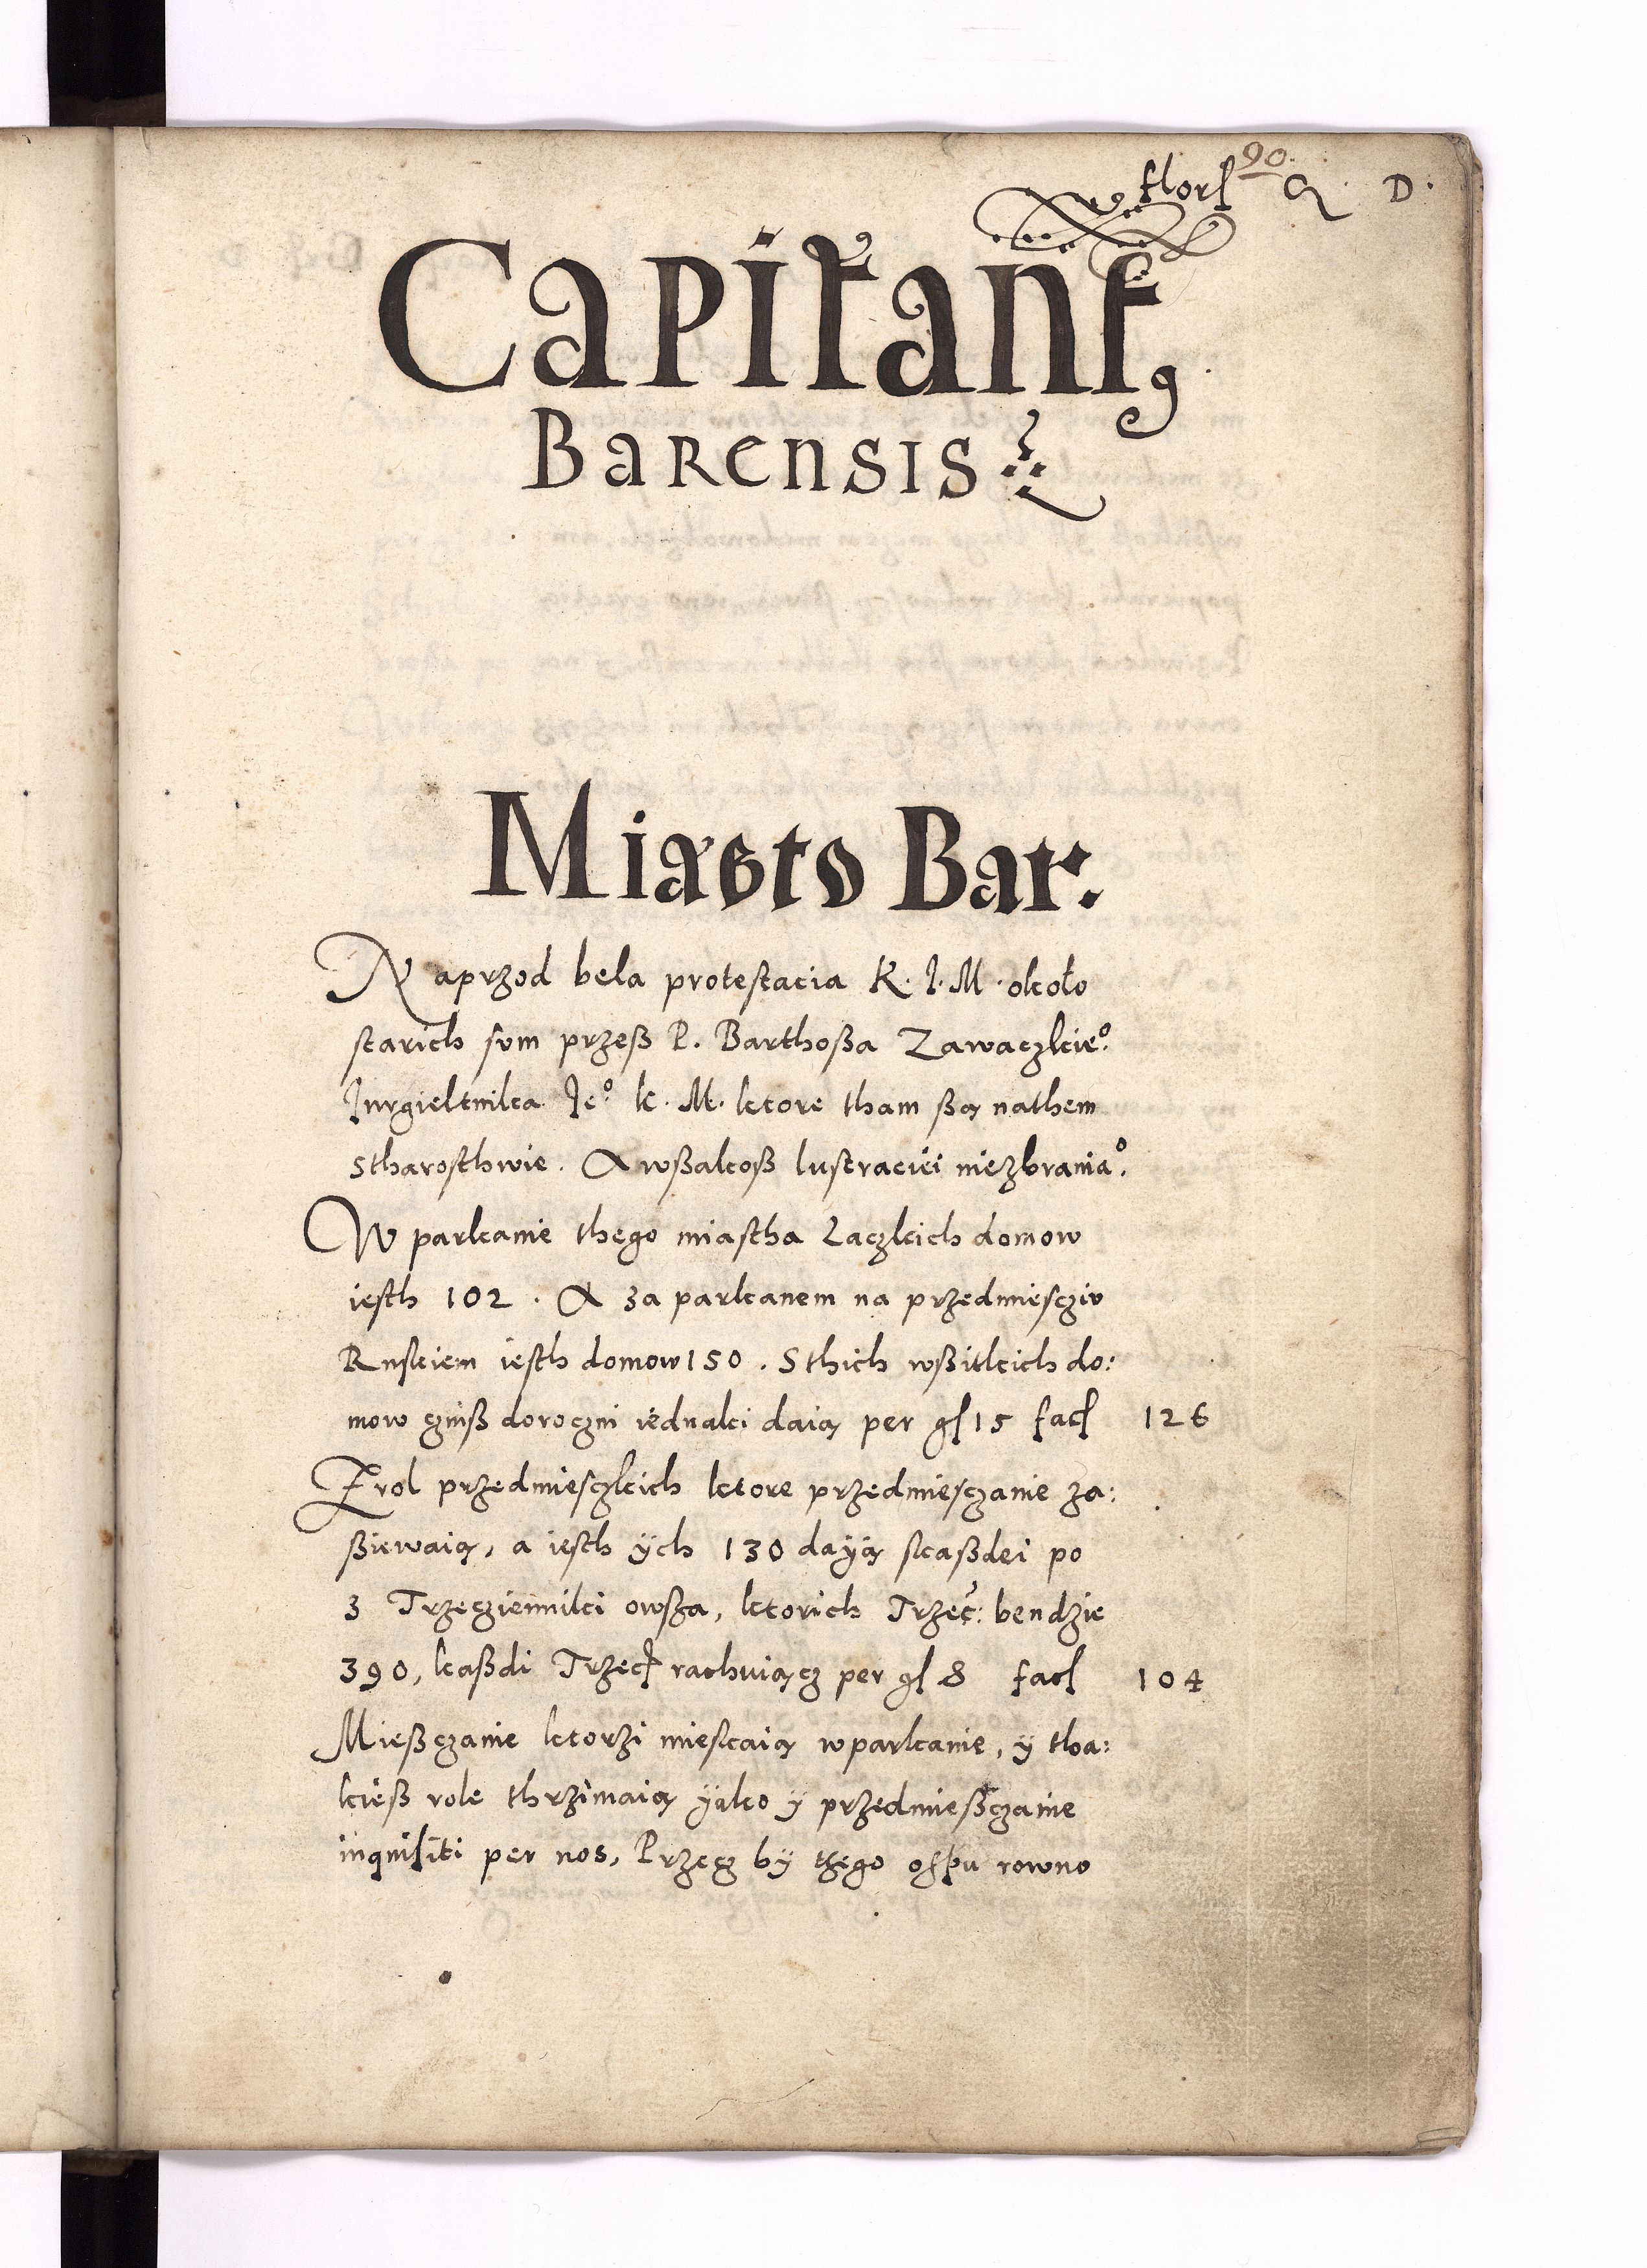 90.
flor q D.
Capitanatus
Barensis
Miasto Bar.
Naprzod bela protestacia K. J. M. około
starich sum przeß P. Barthoßa Zawaczkieo.
Jurgieltnika Jeo k. M. ktore tham ßą nathem
Stharosthwie. A wßakoß lustraciei niezbraniao.
W parkanie thego miastha Laczkich domow
iesth 102. A za parkanem na przedmiesciu
Ruskiem iesth domow 150. S thich wßitkich do:
mow czinß doroczni iednaki daią per gſ 15 facſ 126
Z rol przedmiesczkich ktore przedmiesczanie za:
ßiewaią, a iesth ÿch 130 daÿą skaßdei po
3 Trzeczienniki owsza, ktorich Trzec: bendzie
390, kaßdi Trzecz rachuiącz per gſ 8 facſ 104
Mießczanie ktorzi mieskaią wparkanie, y tha:
kieß role thrzimaią ÿako y przedmießczanie
inquisiti per nos, Przecz bÿ tzego ospu rowno